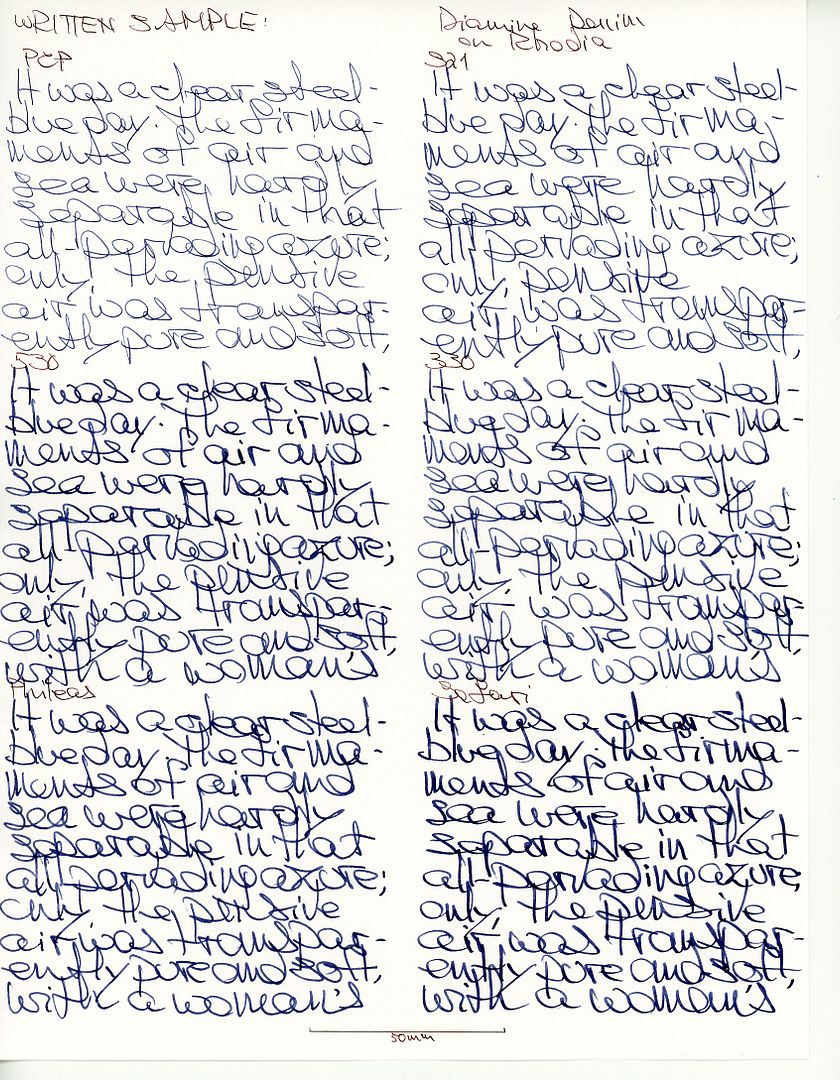 WRITTEN SAMPLE:
PCP
It was a clear steel-
blue day. The firma-
ments of air and
sea were hardly
separable in that
all-pervading azure;
only, the pensive
air was transpar-
ently pure and soft,
530
It was a clear steel-
blue day. The firma-
ments of air and
sea were hardly
separable in that
all-pervading azure;
only, the pensive
air was transpar-
ently pure and soft,
with a woman's
Phileas
It was a clear steel-
blue day. The firma-
ments of air and
sea were hardly
separable in that
all-pervading azure;
only, the pensive
air was transpar-
ently pure and soft,
with a woman's
Diamine Denim
on Rhodia
S21
It was a clear steel-
blue day. The firma-
ments of air and
sea were hardly
separable in that
all-pervading azure;
only, pensive
air was transpar-
ently pure and soft,
330
It was a clear steel-
blue day. The firma-
ments of air and
sea were hardly
separable in that
all-pervading azure;
only, the pensive
air was transpar-
ently pure and soft,
with a woman's
Safari
It was a clear steel-
blue day. The firma-
ments of air and
sea were hardly
separable in that
all-pervading azure,
only, the pensive
air was transpar-
ently pure and soft,
with a woman's
50mm